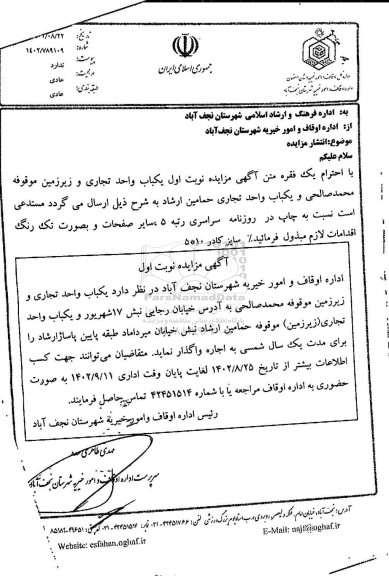 ۰۸/۲۲/
شماره: ۱۴۰۲/۷۸۹۱۰۹
پیوست: ندارد
عادی
طبقه بندی: عادی
جمهوری اسلامی ایران
به: اداره فرهنگ و ارشاد اسلامی شهرستان نجف آباد
از: اداره اوقاف و امور خیریه شهرستان نجف‌آباد
موضوع: انتشار مزایده
سلام علیکم
با احترام یک فقره متن آگهی مزایده نوبت اول یکباب واحد تجاری و زیرزمین موقوفه
محمدصالحی و یکباب واحد تجاری حمامین ارشاد به شرح ذیل ارسال می گردد مستدعی
است نسبت به چاپ در روزنامه سراسری رتبه ۵ ،سایر صفحات و بصورت تک رنگ
اقدامات لازم مبذول فرمائید٪ سایز کادر ۱۰*۵
آگهی مزایده نوبت اول
اداره اوقاف و امور خیریه شهرستان نجف آباد در نظر دارد یکباب واحد تجاری و
زیرزمین موقوفه محمدصالحی به آدرس خیابان رجایی نبش ۱۷شهریور و یکباب واحد
تجاری(زیرزمین) موقوفه حمامین ارشاد نبش خیابان میرداماد طبقه پایین پاساژارشاد را
برای مدت یک سال شمسی به اجاره واگذار نماید. متقاضیان می‌توانند جهت کسب
اطلاعات بیشتر از تاریخ ۱۴۰۲/۸/۲۵ لغایت پایان وقت اداری ۱۴۰۲/۹/۱۱ به صورت
حضوری به اداره اوقاف مراجعه یا با شماره ۴۲۴۵۱۵۱۴ تماس حاصل فرمایند.
رئیس اداره اوقاف وامور خیریه شهرستان نجف آباد
ParsNamadData
سرپرست اداره اوقاف و امور خیریه شهرستان نجف آباد
E-Mail: najf@oghaf.ir
Website: esfahan.oghaf.ir